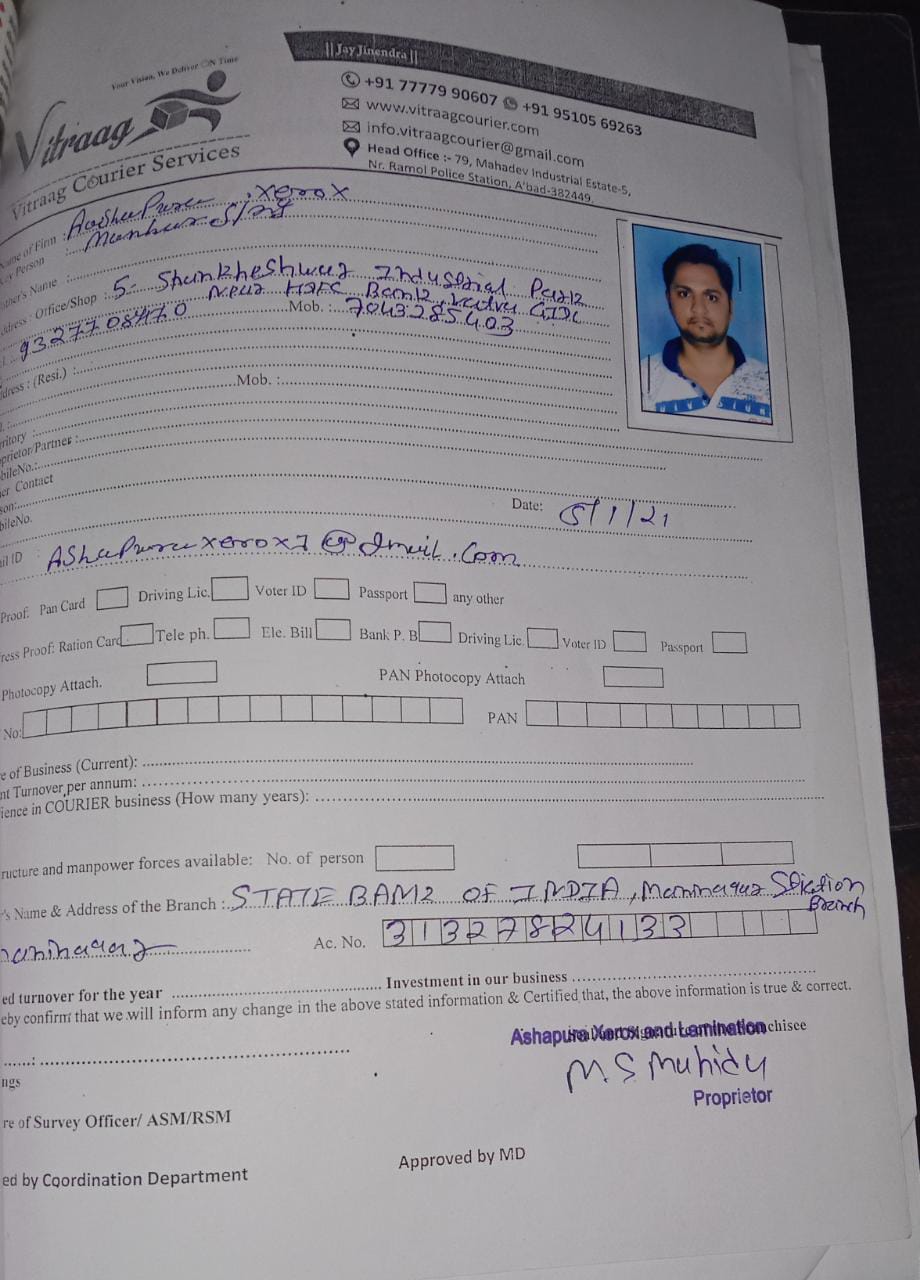 || Jay Jinendra ||
Your Vision, We Deliver ON Time
Vitraag
Vitraag Courier Services
+91 77779 90607 +91 95105 69263
www.vitraagcourier.com
info.vitraagcourier@gmail.com
Head Office :- 79, Mahadev Industrial Estate-5,
Nr. Ramol Police Station, A'bad-382449.
Name of Firm : xerox
Person :
ther's Name :
dress : Office/Shop : 5- Industrial
Near HDFC Bank, GIDC
9327708470 Mob. : 7043285403
dress : (Resi.) :
Mob. :
rritory :
oprietor/Partner :
bileNo.:
er Contact
son:
bileNo.
Date: 5/1/21
ail ID :
Proof: Pan Card Driving Lic. Voter ID Passport any other
ress Proof: Ration Card Tele ph. Ele. Bill Bank P. B Driving Lic. Voter ID Passport
Photocopy Attach. PAN Photocopy Attach
No: PAN
e of Business (Current):
nt Turnover per annum:
ience in COURIER business (How many years):
ructure and manpower forces available: No. of person
's Name & Address of the Branch : STATE BANK OF INDIA, Maninagar Station
Branch
maninagar Ac. No. 31327824133
ed turnover for the year Investment in our business
eby confirm that we will inform any change in the above stated information & Certified that, the above information is true & correct.
Ashapura Xerox and Lamination chisee
Proprietor
ngs
re of Survey Officer/ ASM/RSM
ed by Coordination Department Approved by MD